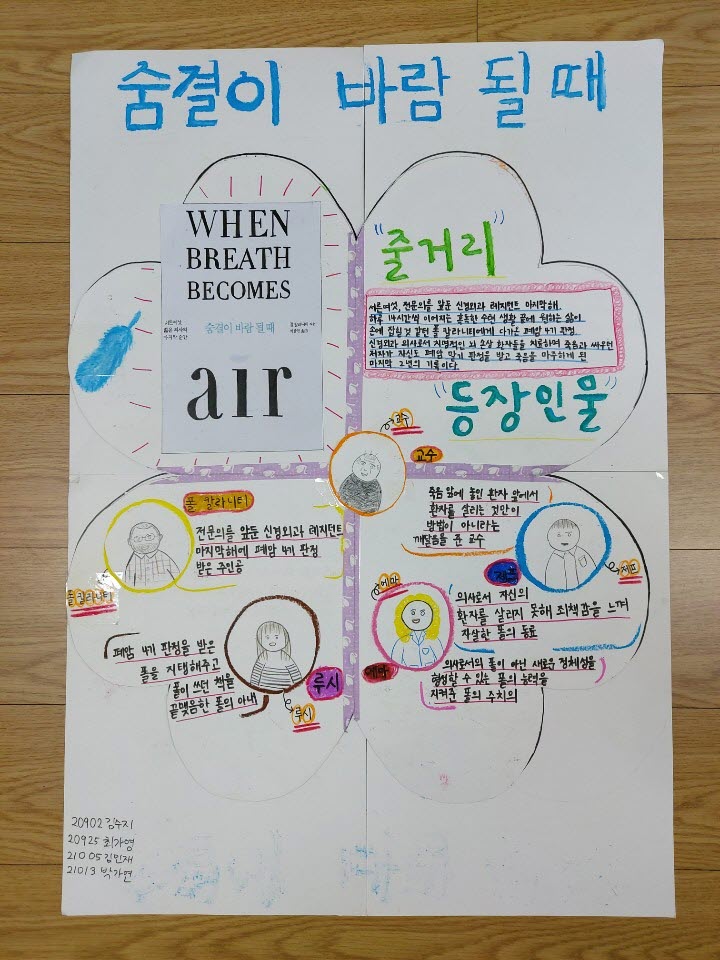 숨결이 바람 될 때
WHEN
BREATH
BECOMES
서른여섯
젊은 의사의
마지막 순간
숨결이 바람 될 때
폴 칼라니티
air
"줄거리"
서른여섯, 전문의를 앞둔 신경외과 레지던트 마지막해.
하루 14시간씩 이어지는 혹독한 수련 생활 끝에 원하는 삶이
손에 잡힐 것 같던 폴 칼라니티에게 다가온 폐암 4기 판정.
신경외과 의사로서 치명적인 뇌 손상 환자들을 치료하며 죽음과 싸우던
저자가 자신도 폐암 말기 판정을 받고 죽음을 마주하게 된
마지막 2년의 기록이다.
"등장인물"
교수
교수
죽음 앞에 놓인 환자 앞에서
환자를 살리는 것만이
방법이 아니라는
깨달음을 준 교수
폴 칼라니티
전문의를 앞둔 신경외과 레지던트
마지막해에 폐암 4기 판정
받은 주인공
폴 칼라니티
제프
제프
의사로서 자신의
환자를 살리지 못해 죄책감을 느껴
자살한 폴의 동료
에마
에마
의사로서의 폴이 아닌 새로운 정체성을
형성할 수 있는 폴의 능력을
지켜준 폴의 주치의
폐암 4기 판정을 받은
폴을 지탱해주고
폴이 쓰던 책을
끝맺음한 폴의 아내
루시
루시
20902 김수지
20925 최가영
21005 김민재
21013 박가연